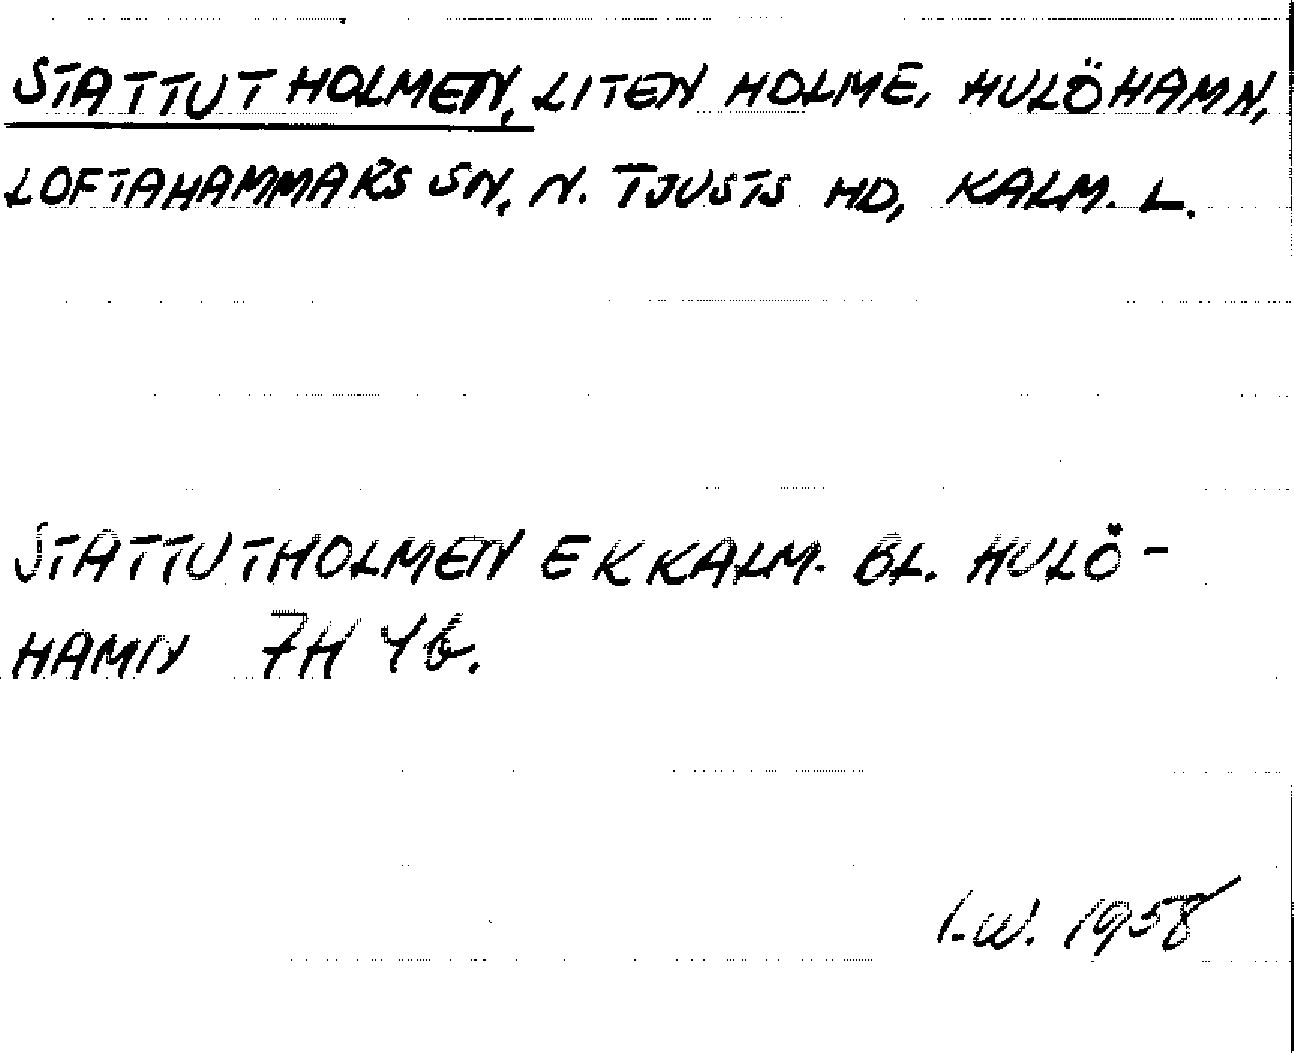 STATTUTHOLMEN, LITEN HOLME, HULÖHAMN,
LOFTAHAMMARS SN, N. TJUSTS HD, KALM. L.
STATTUTHOLMEN EK KALM. BL. HULÖ-
HAMN 7H 4b.
I.W. 1958